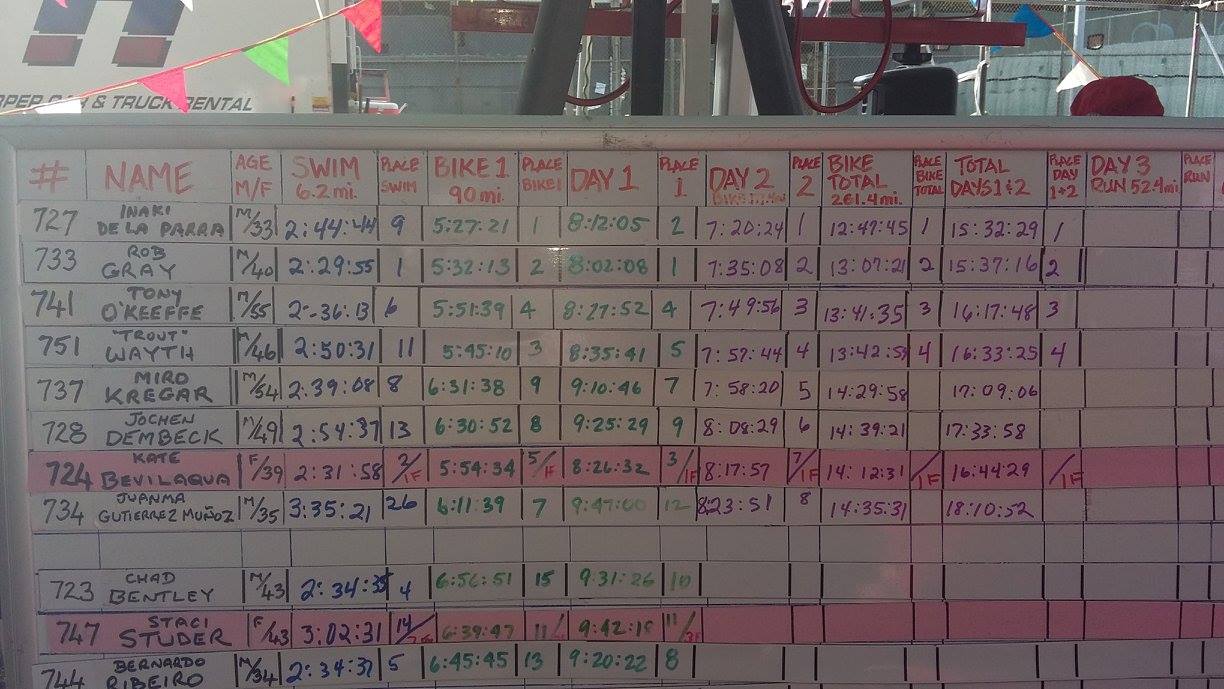 & TRUCK RENTAL
# NAME AGE M/F SWIM 6.2 mi. PLACE SWIM BIKE 1 90 mi. PLACE BIKE 1 DAY 1 PLACE 1 DAY 2 PLACE 2 BIKE TOTAL 261.4 mi. PLACE BIKE TOTAL TOTAL DAYS 1+2 PLACE DAY 1+2 DAY 3 RUN 52.4 mi PLACE RUN
727 INAKI DE LA PARRA M/33 2:44:44 9 5:27:21 1 8:12:05 2 7:20:24 1 12:47:45 1 15:32:29 1
733 ROB GRAY M/40 2:29:55 1 5:32:13 2 8:02:08 1 7:35:08 2 13:07:21 2 15:37:16 2
741 TONY O'KEEFFE M/55 2:36:13 6 5:51:39 4 8:27:52 4 7:49:56 3 13:41:35 3 16:17:48 3
751 "TROUT" WAYTH M/46 2:50:31 11 5:45:10 3 8:35:41 5 7:57:44 4 13:42:54 4 16:33:25 4
737 MIRO KREGAR M/54 2:39:08 8 6:31:38 9 9:10:46 7 7:58:20 5 14:29:58 17:09:06
728 JOCHEN DEMBECK M/49 2:54:37 13 6:30:52 8 9:25:29 9 8:08:29 6 14:39:21 17:33:58
724 KATE BEVILAQUA F/39 2:31:58 2/1F 5:54:34 5/1F 8:26:32 3/1F 8:17:57 7/1F 14:12:31 /1F 16:44:29 /1F
734 JUANMA GUTIERREZ MUÑOZ M/35 3:35:21 26 6:11:39 7 9:47:00 12 8:23:51 8 14:35:31 18:10:52
723 CHAD BENTLEY M/43 2:34:35 4 6:56:51 15 9:31:26 10
747 STACI STUDER F/43 3:02:31 14/ 6:39:47 11/ 9:42:18 11/
744 BERNARDO RIBEIRO M/34 2:34:37 5 6:45:45 13 9:20:22 8